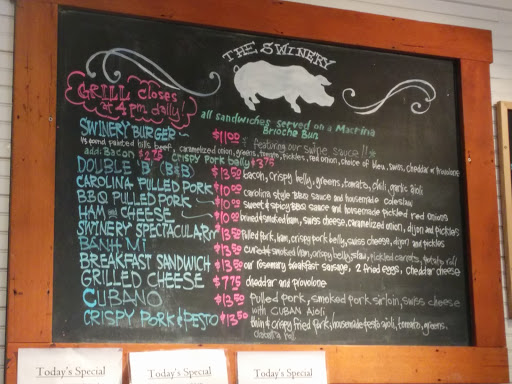 THE SWINERY
GRILL closes
at 4 pm daily!
all sandwiches served on a Macrina
Brioche Bun
SWINERY BURGER $11.00 featuring our swine sauce!!
1/3 pound painted hills beef, caramelized onion, greens, tomato, pickles, red onion, choice of bleu, swiss, cheddar or provolone
add: Bacon $2.75 Crispy Pork belly $3.75
DOUBLE 'B' (B&B) $13.50 bacon, crispy belly, greens, tomato, chili, garlic aioli
CAROLINA PULLED PORK $10.00 carolina style BBQ sauce and housemade coleslaw
BBQ PULLED PORK $10.00 sweet & spicy BBQ sauce and housemade pickled red onions
HAM AND CHEESE $10.00 brined & smoked ham, swiss cheese, caramelized onion, dijon and pickles
SWINERY SPECTACULAR!! $13.50 pulled pork, ham, crispy pork belly, swiss cheese, dijon and pickles
BANH MI $13.50 cured & smoked ham, crispy belly, slaw, pickled carrots,
BREAKFAST SANDWICH $13.50 our rosemary breakfast sausage, 2 fried eggs, cheddar cheese
GRILLED CHEESE $7.75 cheddar and provolone
CUBANO $13.50 pulled pork, smoked pork sirloin, swiss cheese
with CUBAN AIOLI
CRISPY PORK & PESTO $13.50 thin & crispy fried pork, housemade pesto aioli, tomato, greens,
Today's Special
Today's Special
Today's Special